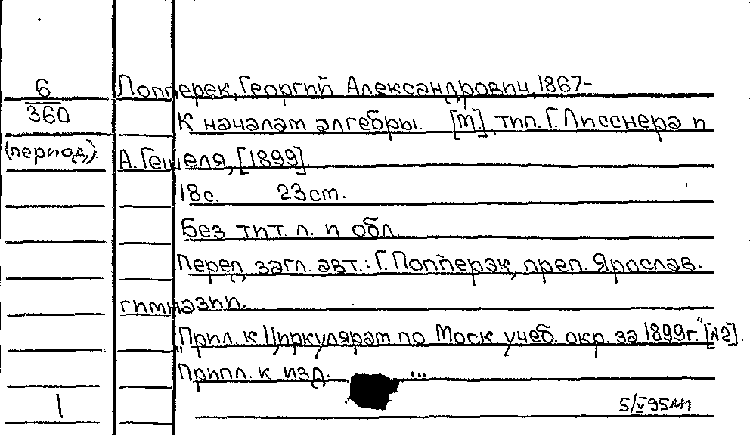 6 Попперек, Георгий Александрович, 1867-
360 К началам алгебры. [М], тип. Г. Лисснера и
(период) А. Гешеля, [1899].
18с. 23 ст.
Без тит. л. и обл.
Перед загл. авт.: Г. Попперэк, преп. Ярослав.
гимназии.
Прил. к Циркулярам по Моск. учеб. окр. за 1899г." [№2].
Припл. к изд. ...
1 5/V 95